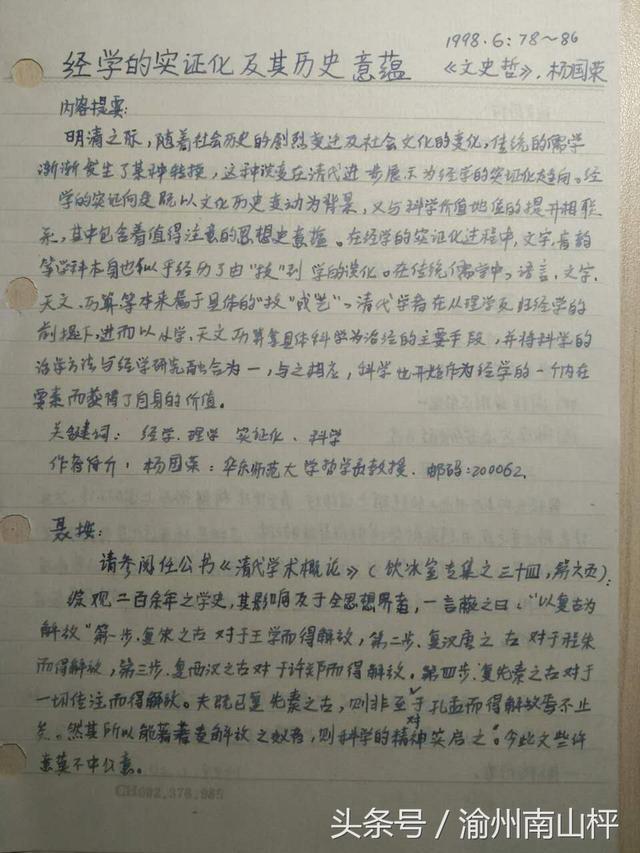 1998.6:78~86
经学的实证化及其历史意蕴 《文史哲》.杨国荣
内容提要:
明清之际,随着社会历史的剧烈变迁及社会文化的变化,传统的儒学
渐渐发生了某种转换,这种演变在清代进一步展示为经学的实证化趋向。经
学的实证向度既以文化历史变动为背景,又与科学价值地位的提升相联
系,其中包含着值得注意的思想史意蕴。在经学的实证化过程中,文字、音韵
等学科本身也似乎经历了由“技”到学的演化。在传统儒学中,语言、文字、
天文、历算等本来属于具体的“技”或“艺”,清代学者在从理学反归经学的
前提下,进而以小学、天文历算等具体科学为治经的主要手段,并将科学的
治学方法与经学研究融合为一,与之相应,科学也开始作为经学的一个内在
要素而获得了自身的价值。
关键词: 经学.理学 实证化、科学
作者简介: 杨国荣:华东师范大学哲学系教授.邮码:200062.
聂按:
请参阅任公书《清代学术概论》(饮冰室专集之三十四,第六页):
综观二百余年之学史,其影响及于全思想界者,一言蔽之曰:“以复古为
解放”第一步.复宋之古 对于王学而得解放,第二步.复汉唐之古 对于程朱
而得解放,第三步.复西汉之古对于许郑而得解放.第四步.复先秦之古对于
一切传注而得解放。夫既已复先秦之古,则非至对于孔孟而得解放焉不止
矣。然其所以能著著奏解放之效者,则科学的精神实启之。今此文些许
意蕴不中公意.
CH092.376.985
头条号/渝州南山枰